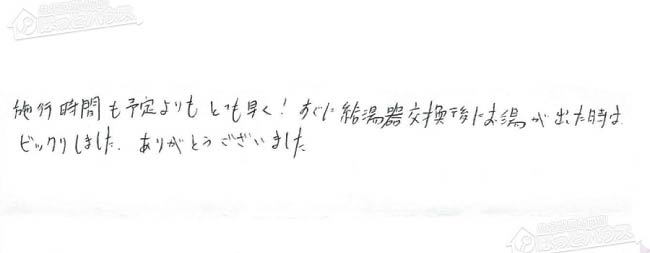 施行時間も予定よりもとても早く！すぐに給湯器交換後にお湯が出た時は
ビックリしました。ありがとうございました